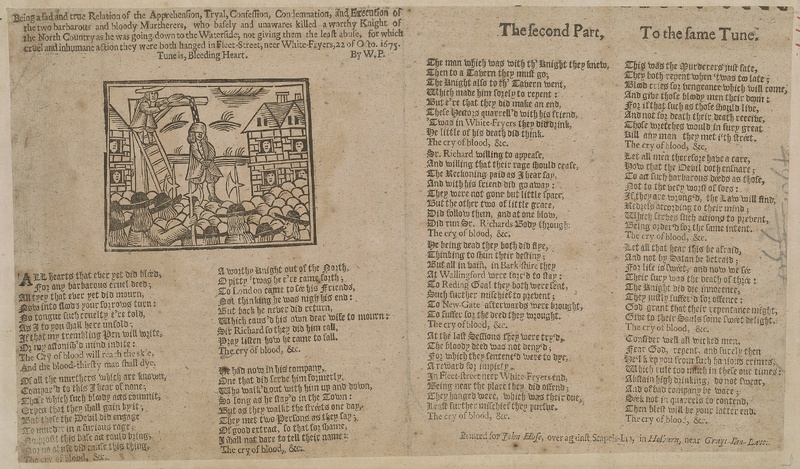 Being a sad and true Relation of the Apprehension, Tryal, Confession, Condemnation, and Execution of
the two barbarous and bloody Murtherers, who basely and unawares killed a worthy Knight of
the North Country as he was going down to the Waterside, not giving them the least abuse, for which
cruel and inhumane action they were both hanged in Fleet-Street, near White-Fryers, 22 of Octo. 1675.
Tune is, Bleeding Heart. By W. P.
ALL hearts that ever yet did bleed,
For any barbarous cruel deed;
All eyes that ever yet did mourn,
Now into flouds your sorrows turn:
No tongue such cruelty e'er told,
As I to you shall here unfold:
If that my trembling Pen will write,
Or my astonish'd mind indite:
The Cry of blood will reach the skie,
And the blood-thirsty man shall dye.
Of all the murthers which are known,
Compar'd to this I hear of none:
Those which such bloody acts commit,
Expect that they shall gain by it;
But these the Devil did engage
To murder in a furious rage;
No profit this base act could bring,
Nor no abuse did cause this thing,
The cry of blood, &c.
A worthy Knight out of the North,
O pitty 'twas he e'er came forth;
To London came to see his Friends,
Not thinking he was nigh his end:
But back he never did return,
Which caus'd his own dear wife to mourn:
Sir Richard so they did him call,
Pray listen how he came to fall.
The cry of blood, &c.
He had now in his company,
One that did serve him formerly,
Who walk'd out with him up and down,
So long as he stay'd in the Town:
But as they walkt the streets one day,
They met two Persons as they say;
Of good extract, so that for shame,
I shall not dare to tell their name:
The cry of blood, &c.
The second Part, To the same Tune.
The man which was with th' Knight they knew,
Then to a Tavern they must go;
The Knight also to th' Tavern went,
Which made him sorely to repent:
But e're that they did make an end,
These Hectors quarrell'd with his friend,
'Twas in White-Fryers they did drink,
He little of his death did think.
The cry of blood, &c.
Sr. Richard willing to appease,
And willing that their rage should cease,
The Reckoning paid as I hear say,
And with his friend did go away:
They were not gone but little space,
But the other two of little grace,
Did follow them, and at one blow,
Did run Sr. Richards Body through:
The cry of blood, &c.
He being dead they both did flye,
Thinking to shun their destiny;
But all in vain, in Bark-shire they
At Wallingford were forc'd to stay:
To Reding Goal they both were sent,
Such further mischief to prevent;
To New-Gate afterwards were brought,
To suffer for the deed they wrought.
The cry of blood, &c.
At the last Sessions they were try'd,
The bloody deed was not deny'd
For which they sentenc'd were to dye,
A reward for impiety,
In Fleet-street neer White-Fryers end,
Being near the place they did offend;
They hanged were, which was their due,
Least further mischief they pursue.
The cry of blood, &c.
This was the Murderers just fate,
They both repent when 'twas too late;
Blood cries for vengeance which will come,
And give those bloody men their doom:
For if that such as those should live,
And not for death their death receive,
Those wretches would in fury great
Kill any man they met i'th street.
The cry of blood, &c.
Let all men therefore have a care,
How that the Devil doth ensnare;
To act such barbarous deeds as those,
Not to the very worst of foes:
If they are wrong'd, the Law will find,
Redress according to their mind;
Which serves such actions to prevent,
Being order'd for the same intent.
The cry of blood, &c.
Let all that hear this be afraid,
And not by Satan be betraid;
For life is sweet, and now we see
Their fury was the death of three:
The Knight did die innocence,
They justly suffer'd for offence:
God grant that their repentance might,
Give to their Souls some sweet delight.
The cry of blood, &c.
Consider well all wicked men,
Fear God, repent, and surely then
He'l keep you from such hainous crimes,
Which rule too much in these our times:
Abstain high drinking, do not swear,
And of bad company beware;
Seek not in quarrels to contend,
Then blest will be your latter end.
The cry of blood, &c.
Printed for John Hose, over against Staples-Inn, in Holborn, near Grays-Inn-Lane.